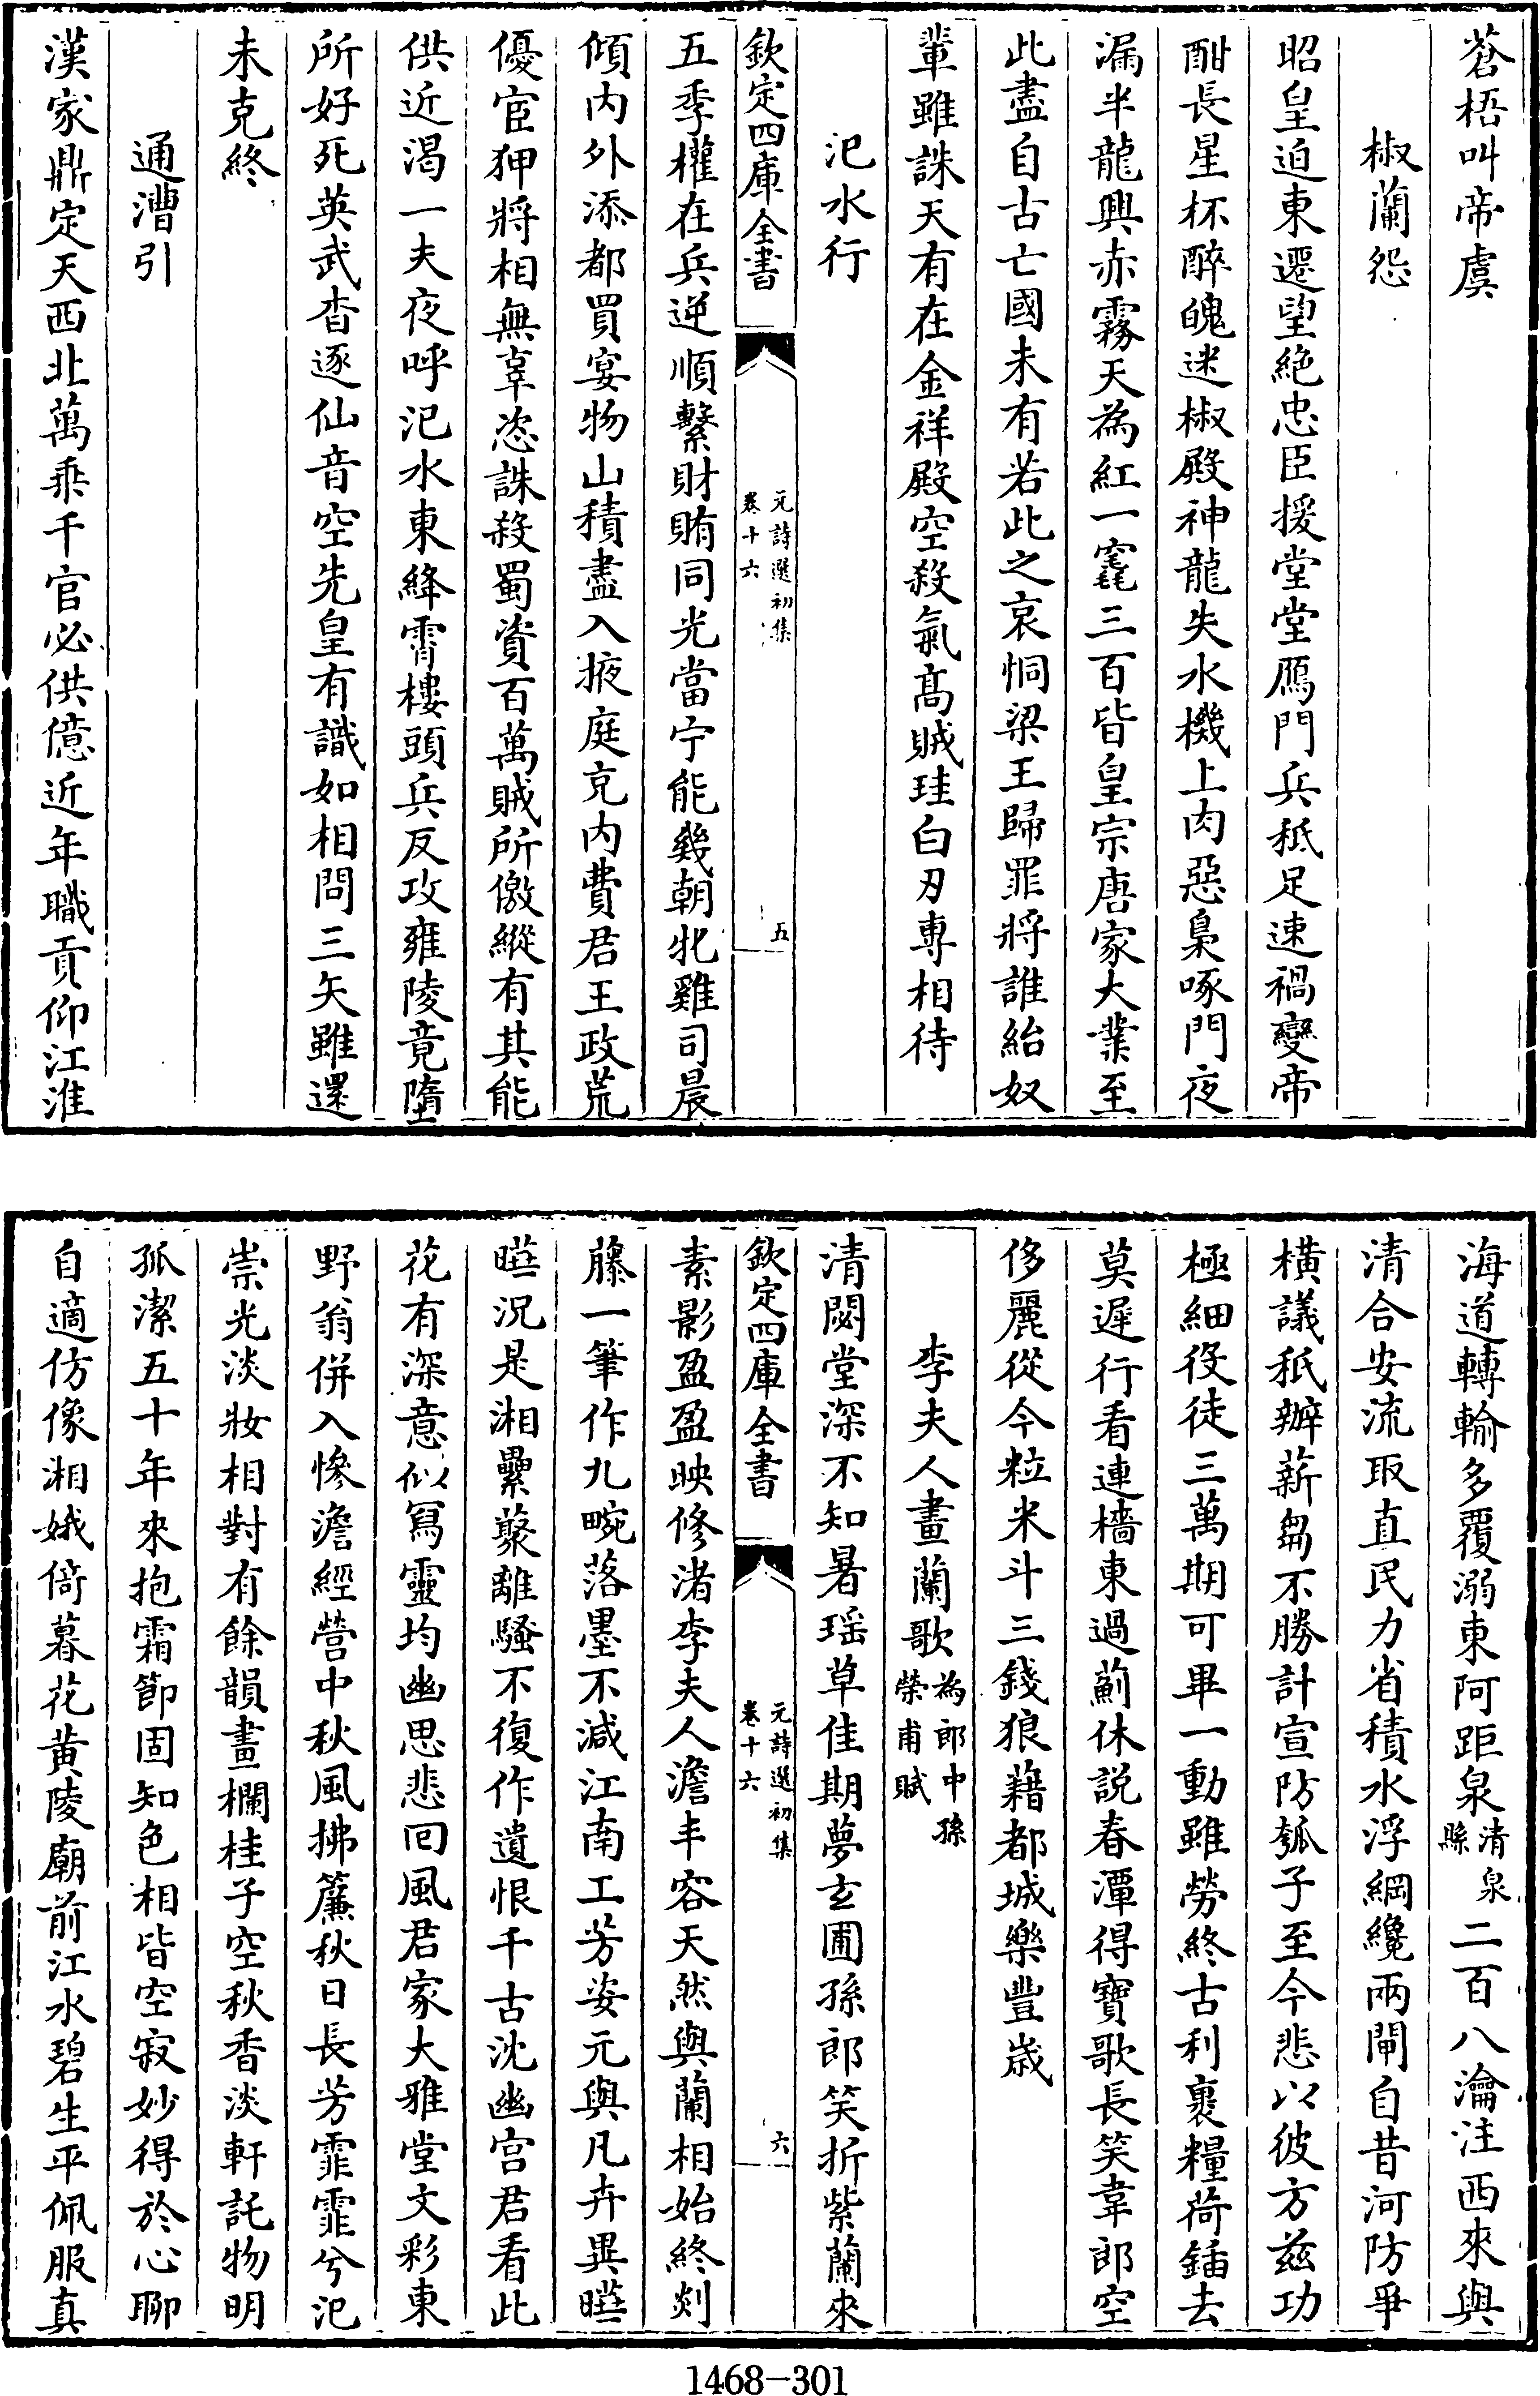 蒼梧叫帝虞
椒蘭怨
昭皇迫東遷望絶忠臣援堂堂鴈門兵秖足速禍變帝
酣長星杯醉魄迷椒殿神龍失水機上肉惡梟啄門夜
漏半龍興赤霧天為紅一竁三百皆皇宗唐家大業至
此盡自古亡國未有若此之哀恫梁王歸罪將誰紿奴
輩雖誅天有在金祥殿空殺氣髙賊珪白刃專相待
汜水行
欽定四庫全書
元詩選初集
卷十六
五
五季權在兵逆順繫財賄同光當宁能幾朝牝雞司晨
傾內外添都買宴物山積盡入掖庭克內費君王政荒
優宦狎將相無辜恣誅殺蜀資百萬賊所儌縱有其能
供近渴一夫夜呼汜水東絳霄樓頭兵反攻雍陵竟墮
所好死英武杳逐仙音空先皇有識如相問三矢雖還
未克終
通漕引
漢家鼎定天西北萬乘千官必供億近年職貢仰江淮
海道轉輸多覆溺東阿距泉清泉縣二百八瀹注西來與
清合安流取直民力省積水浮綱纔兩閘自昔河防爭
橫議秖辦薪芻不勝計宣防瓠子至今悲以彼方兹功
極細役徒三萬期可畢一動雖勞終古利裹糧荷鍤去
莫遲行看連檣東過薊休説春潭得寶歌長笑韋郎空
侈麗從今粒米斗三錢狼藉都城樂豐歳
李夫人畫蘭歌為郎中孫榮甫賦
清閟堂深不知暑瑶草佳期夢玄圃孫郎笑折紫蘭來
欽定四庫全書
元詩選初集
卷十六
六
素影盈盈映修渚李夫人澹丰容天然與蘭相始終剡
藤一筆作九畹落墨不減江南工芳姿元與凡卉異曀
曀況是湘纍蘂離騷不復作遺恨千古沈幽宫君看此
花有深意似冩靈均幽思悲囘風君家大雅堂文彩東
野翁併入慘澹經營中秋風拂簾秋日長芳霏霏兮汜
崇光淡妝相對有餘韻畫欄桂子空秋香淡軒託物明
孤潔五十年來抱霜節固知色相皆空寂妙得於心聊
自適仿像湘娥倚暮花黄陵廟前江水碧生平佩服真
1468-301